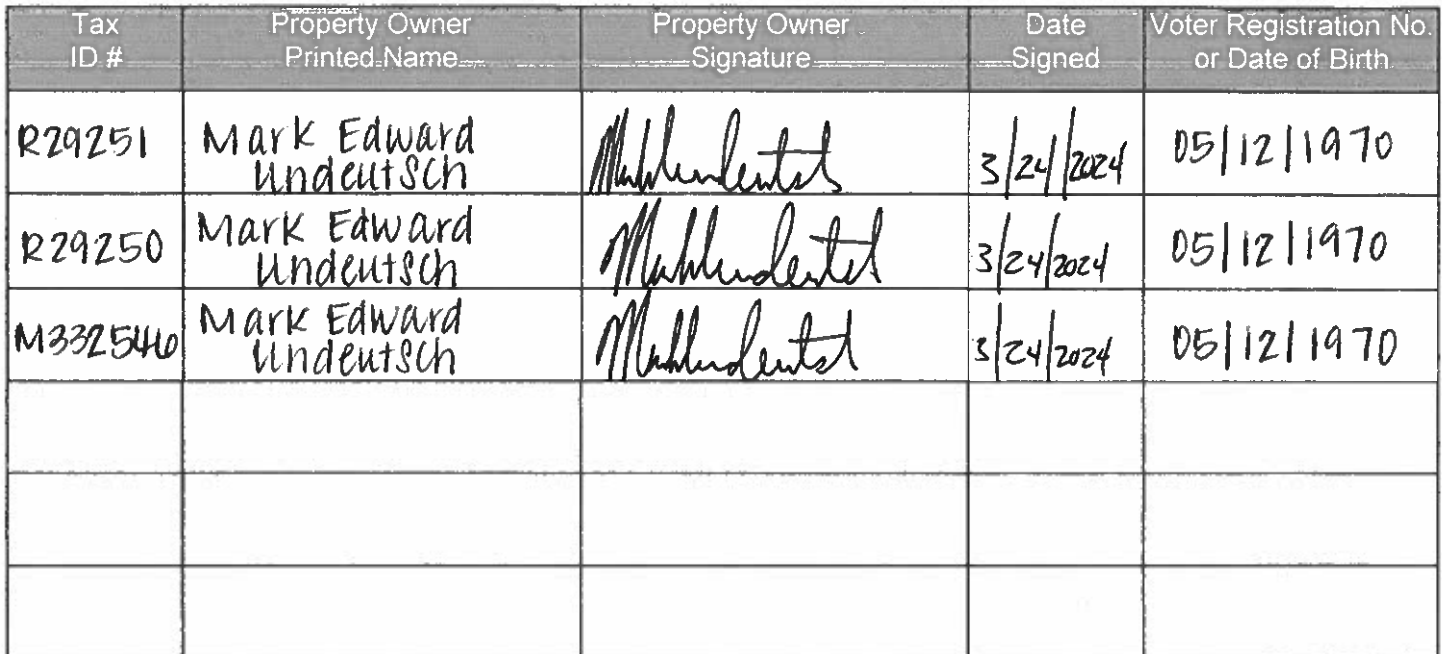 Tax ID # Property Owner Printed Name Property Owner Signature Date Signed Voter Registration No. or Date of Birth
R29251 Mark Edward Undeutsch 3/24/2024 05/12/1970
R29250 Mark Edward Undeutsch 3/24/2024 05/12/1970
M332546 Mark Edward Undeutsch 3/24/2024 05/12/1970